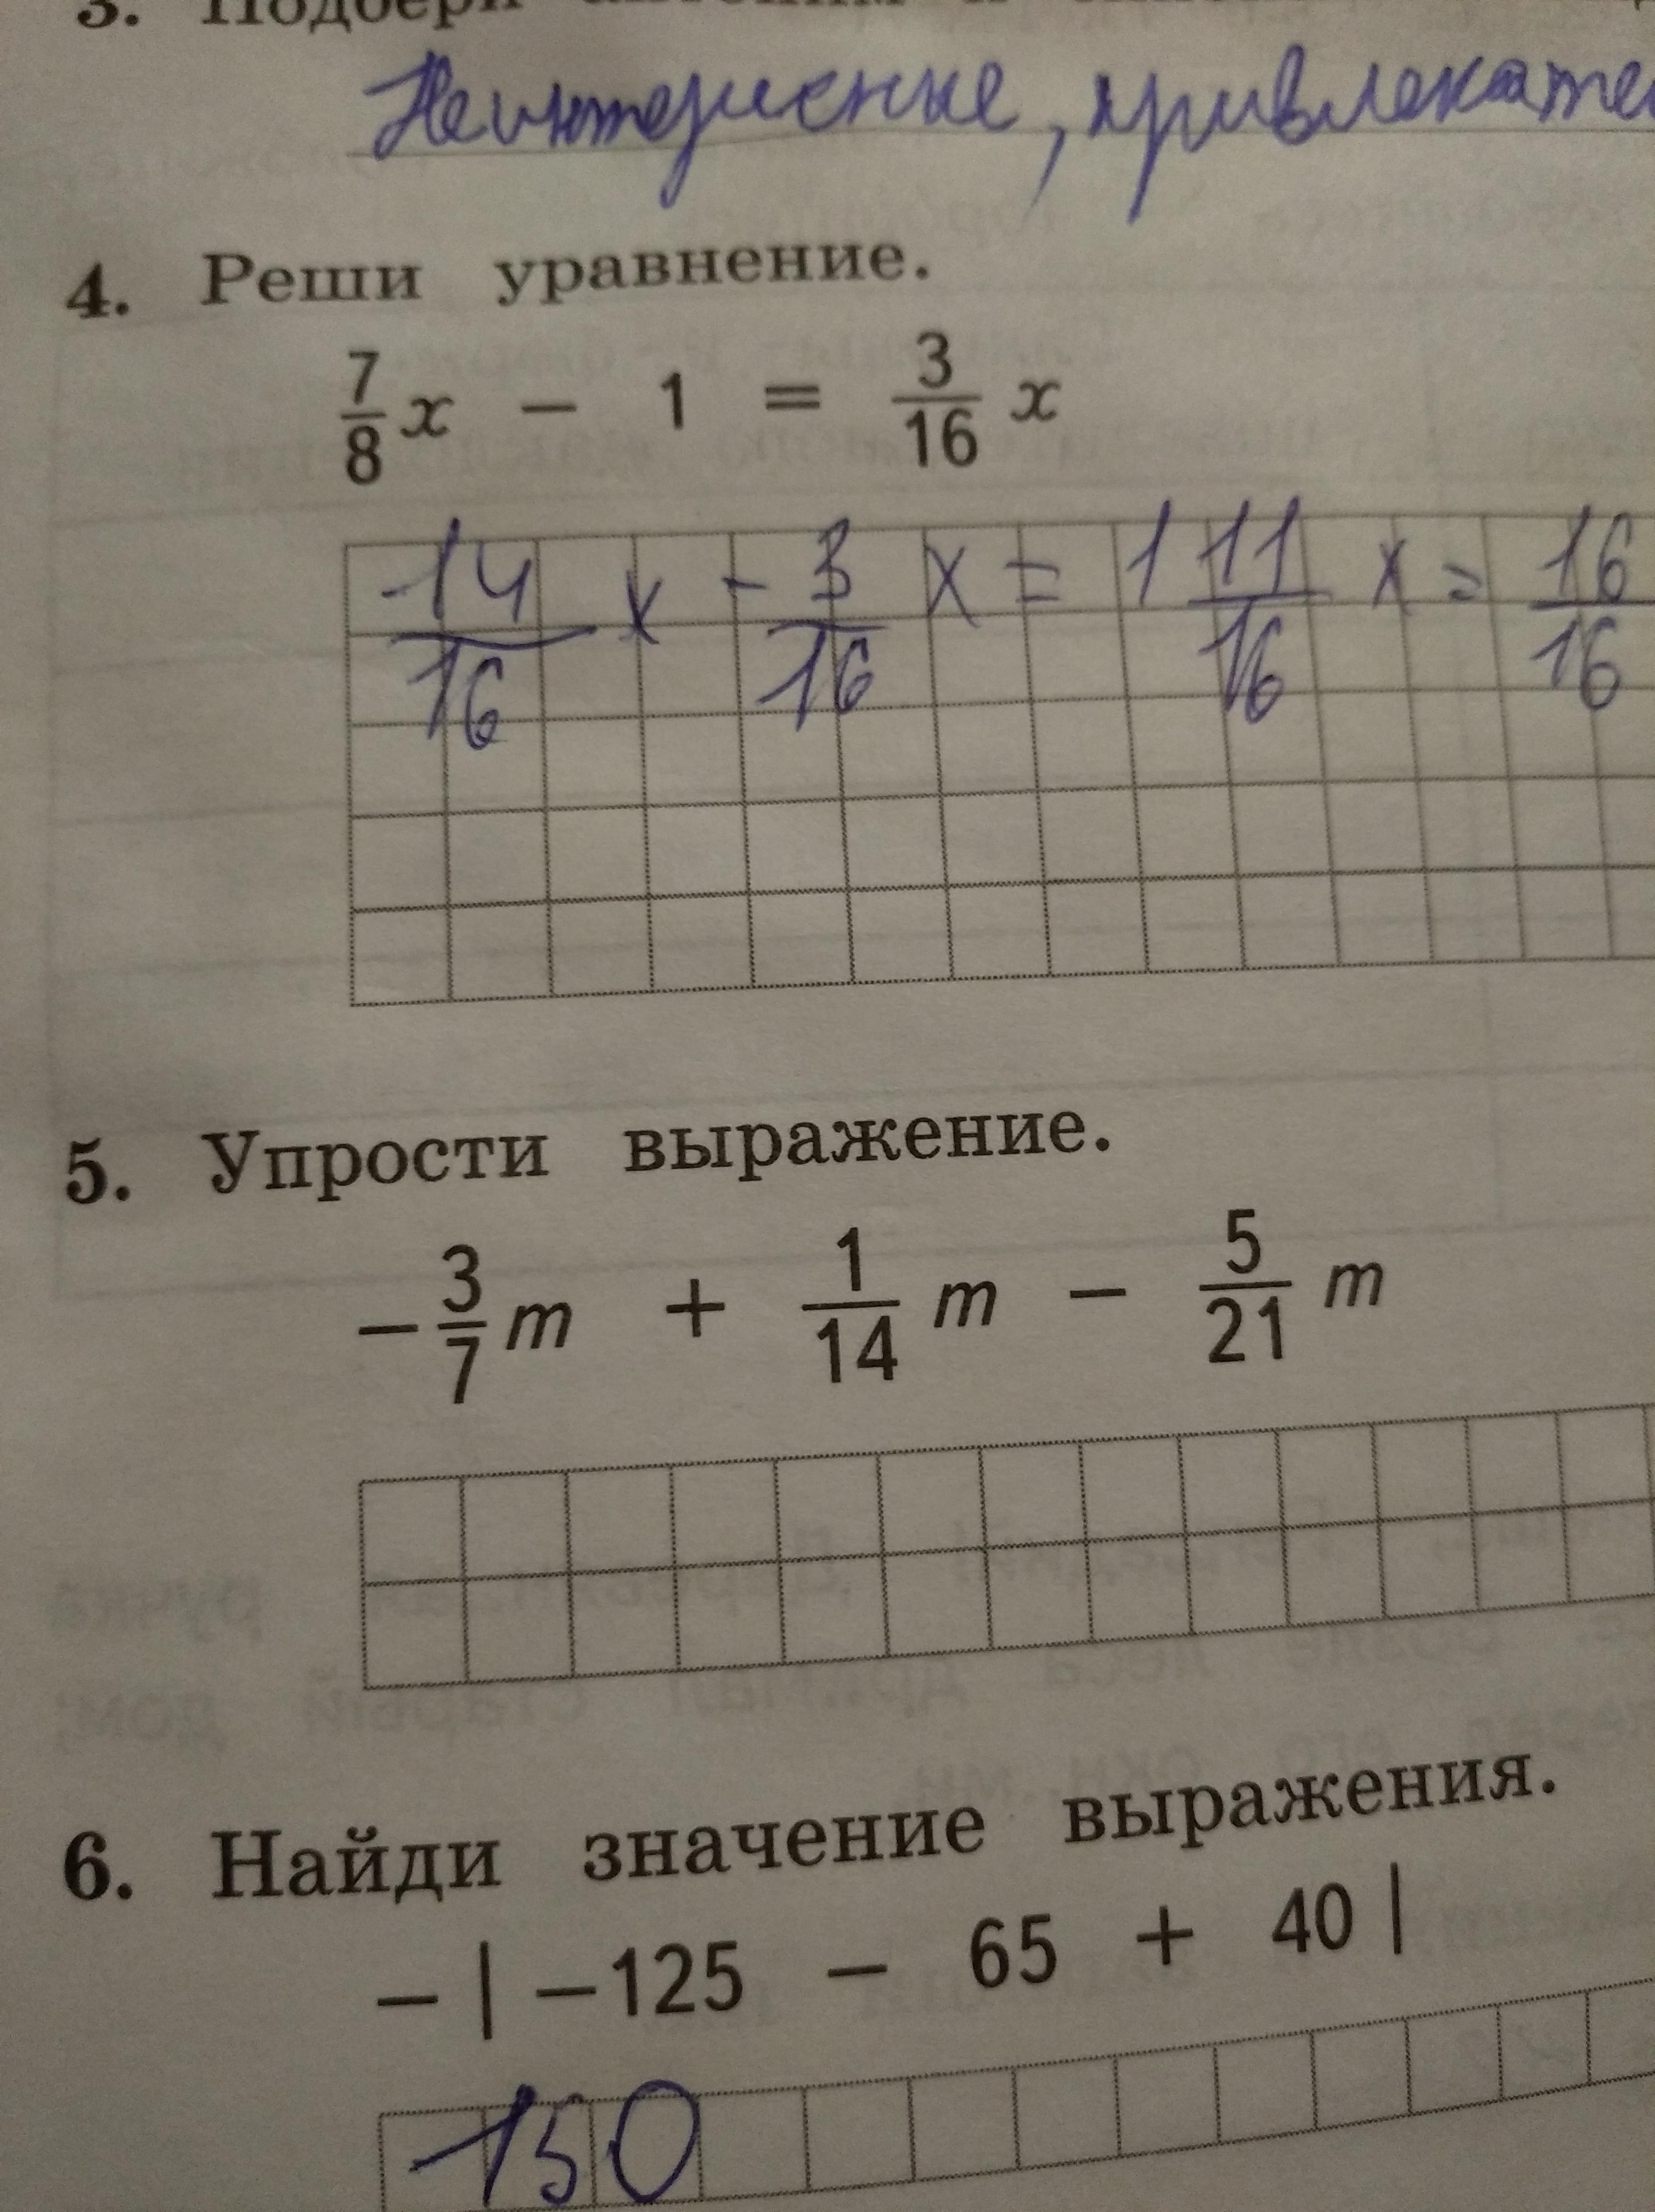 3. Подбери
Неинтересные, привлекате
4. Реши уравнение.
7/8 x − 1 = 3/16 x
14/16 x − 3/16 x = 1 11/16 x = 16/16
5. Упрости выражение.
−3/7 m + 1/14 m − 5/21 m
6. Найди значение выражения.
− | −125 − 65 + 40 |
−150